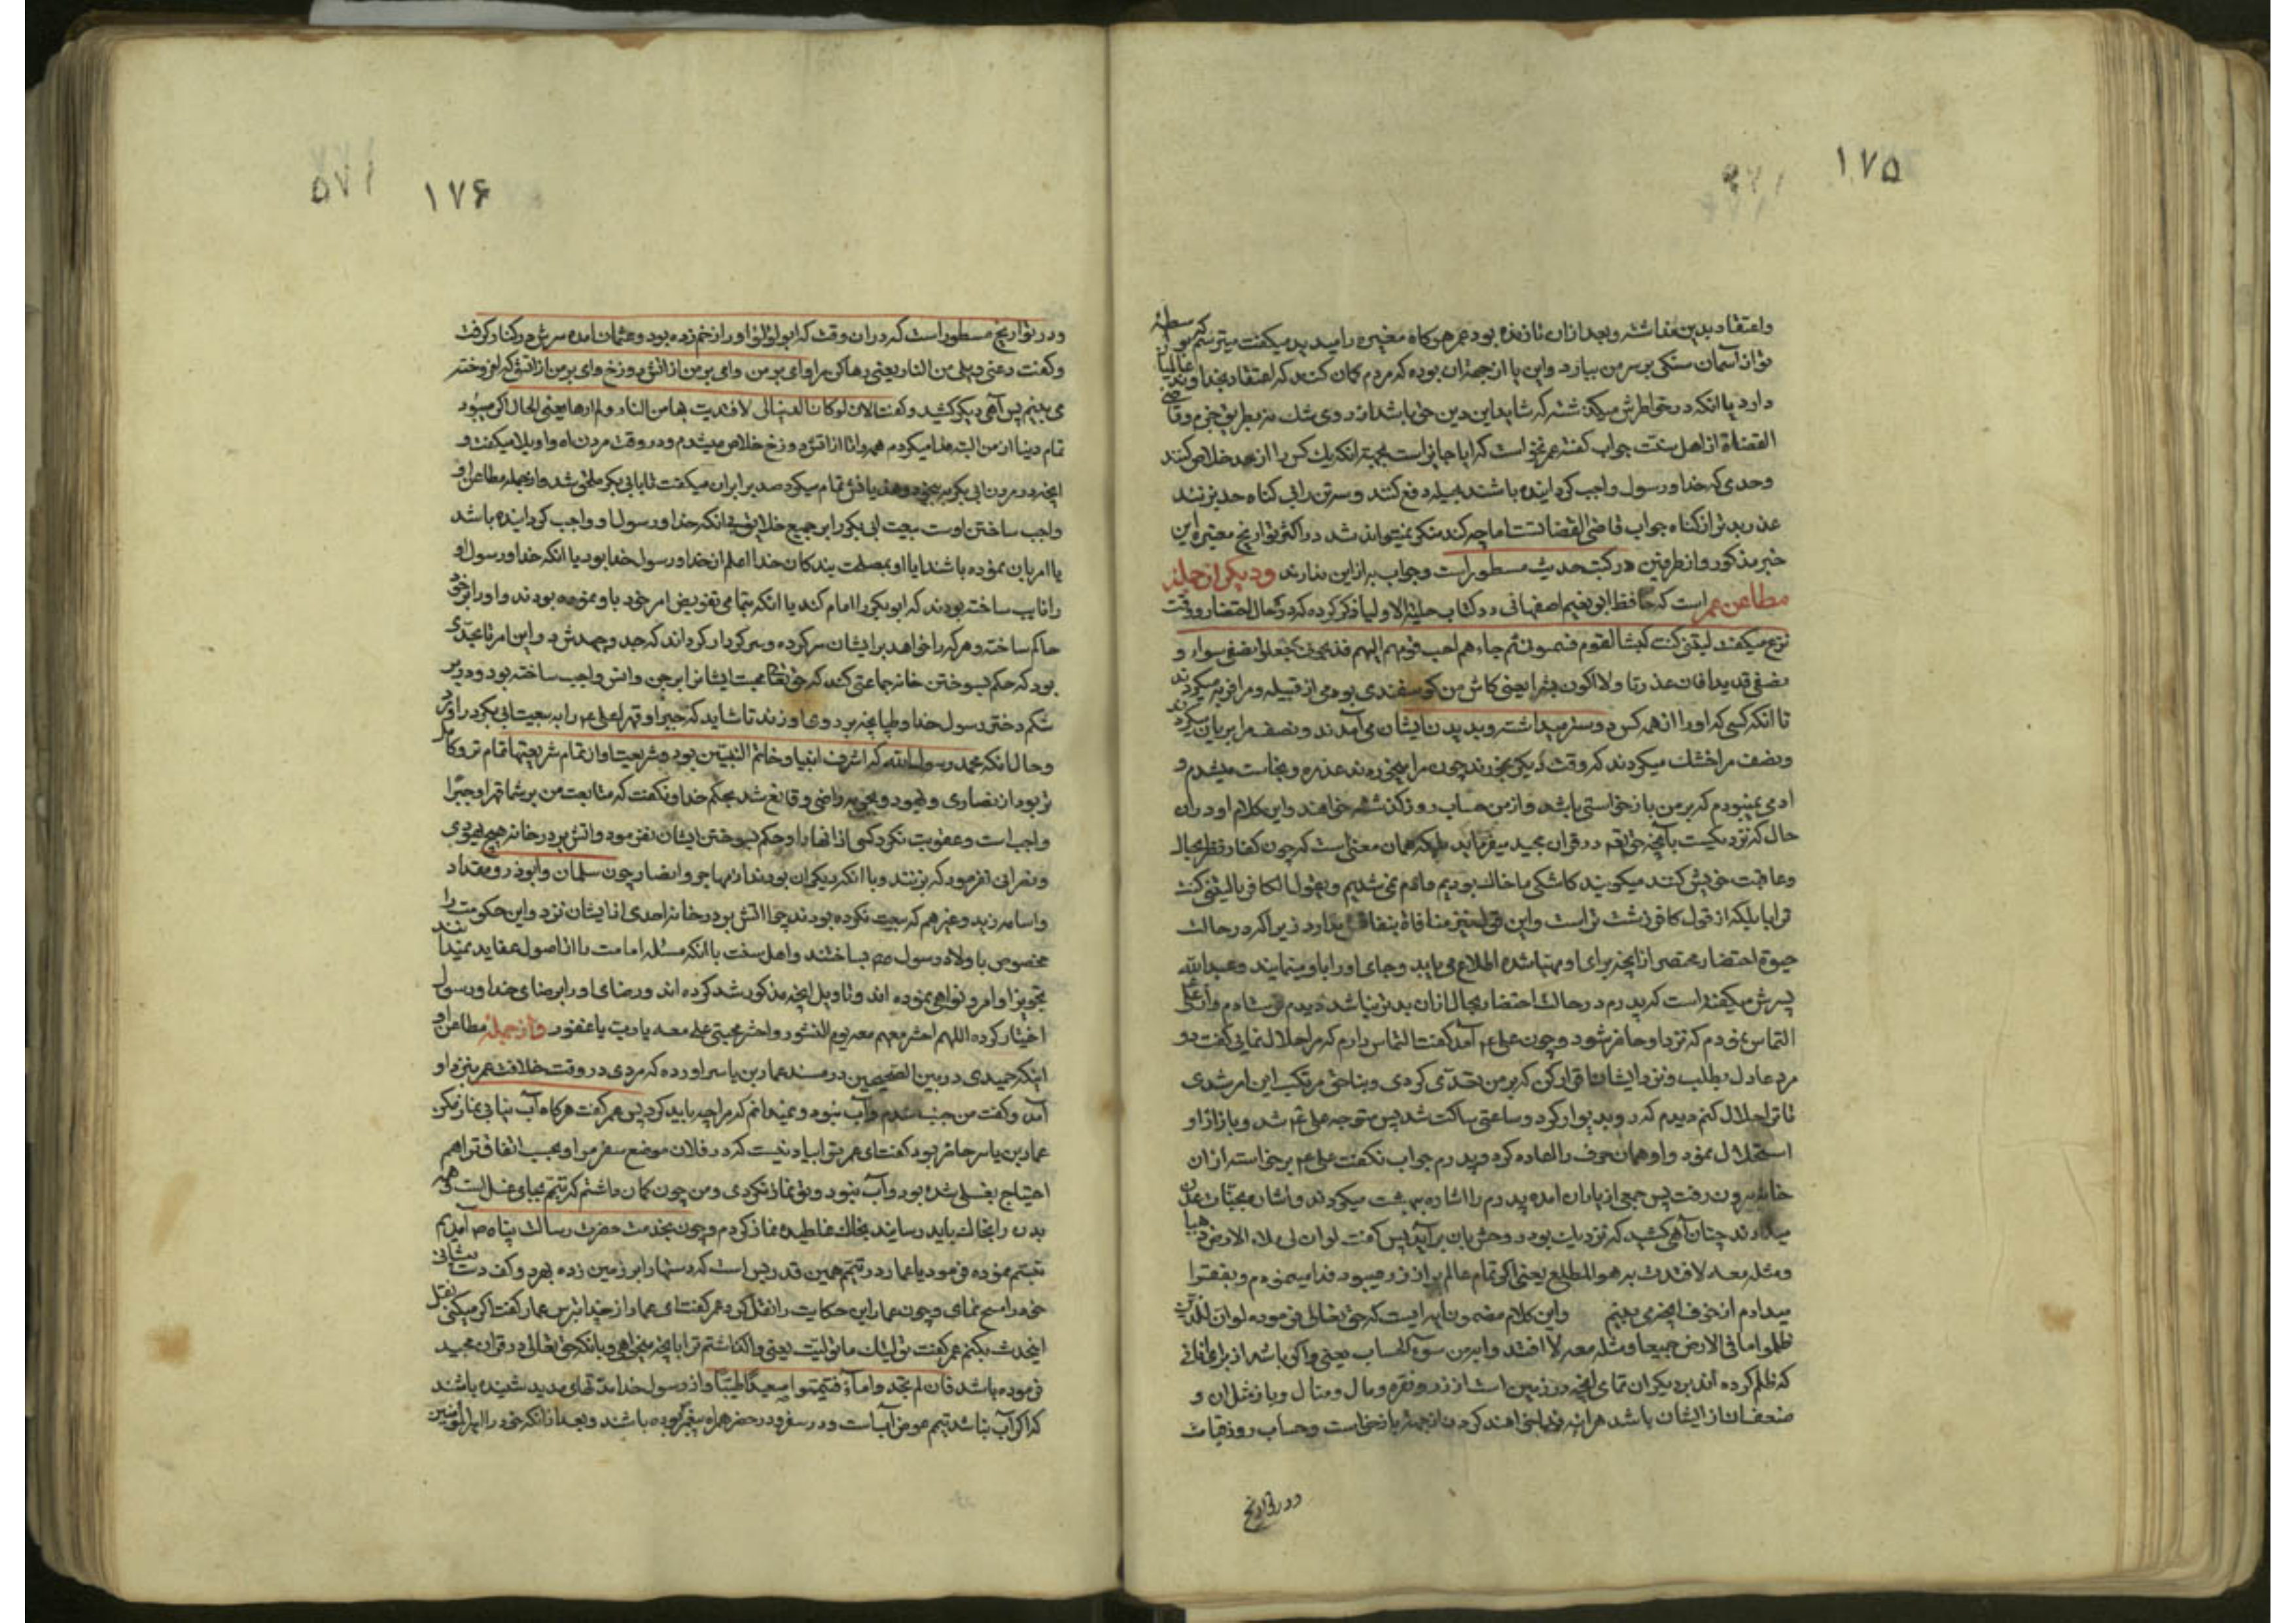 ۱۷۵
واعتقاد بدین نداشته و بعد ازان نازنده بود عمر هرکاه مغیره را میدید میکفت میترسم که بواسطه
تو از آسمان سنکی بر سر من ببارد و این یا از جهة ان بوده که مردم کمان کنند که اعتقاد بخداوند
دارد یا انکه در خواطرش میکذشته که شاید این دین حق باشد از روی شک نه بطریق جزم و قاضی
القضاة از اهل سنت جواب کفته عمر نخواست که ایا جایز است بجهة انکه یک کس را از حد خلاص کنند
وحدی که خدا و رسول واجب کردانیده باشند بحیله دفع کنند و سه تن را بی کناه حد بزنند
عذر بدتر از کناه جواب قاضی القضاتست اما چه کند منکر نمیتواند شد در اکثر تواریخ معتبره این
خبر مذکور و از طرفین در کتب حدیث مسطور است و جواب به از این ندارند ودیکر از جمله
مطاعن عمر است که حافظ ابو نعیم اصفهانی در کتاب حلیة الاولیا ذکر کرده که در حال احتضار و وقت
نزع میکفت لیتنی کنت کبشا لقوم فسمنونی ثم جاءهم احب قومهم الیهم فذبحونی فجعلوا نصفی سواء و
نصفی قدیدا فاکون عذرتا ولا اکون بشرا یعنی کاش من کوسفندی بودمی از قبیله و مرا فربه میکردند
تا انکه کسی که او را از همه کس دوستر میداشته و بدیدن ایشان می آمدند و نصف مرا بریان میکردند
و نصف مرا خشک میکردند که وقت دیکر بخورند چون مرا میخوردند عذره و نجاست میشدم و
ادمی نمیبودم که بر من بازخواستی باشد و از من حساب روز کذشته خواهند و این کلام او در ان
حال که نزدیکست بآنچه حق تعم در قران مجید میفرماید بلکه همان معنی است که چون کفار نظر بحال
وعاقبت خویش کنند میکویند کاشکی ما خاک بودیم و آدم نمی شدیم و یقول الکافر یا لیتنی کنت
ترابا بلکه از قول کافر زشت تر است و این قول نیز منافاة بنفاقش ندارد زیرا که در حالت
حیوة احتضار محتضر از آنچه برای او مهیا شده اطلاع می یابد و جای او را باو مینمایند و عبدالله
پسرش میکفته است که پدرم در حالت احتضار بحال از ان بدتر نباشد دیدم و از علی
التماس نمودم که نزد او حاضر شود و چون علی ع م آمد کفت التماس دارم که مرا حلال نمایی کفت دو
مرد عادل بطلب و نزد ایشان اقرار کن که بر من تعدی کردی و بناحق مرتکب این امر شدی
تا ترا حلال کنم دیدم که رو بدیوار کرد و ساعتی ساکت شد پس متوجه علی ع م شد و باز از او
استحلال نمود و او همان حرف را اعاده کرد و پدرم جواب نکفت علی ع م برخاسته از ان
خانه بیرون رفت پس جمعی از یاران امده پدرم را اشاره ببهشت میکردند و بشارت بجنات عدن
میدادند چنان آهی کشید که نزدیک بود روحش بان برآید پس کفت لو ان لی ملاء الارض ذهبا
ومثله معه لافتدت به هول المطلع یعنی اکر تمام عالم پر از زر میبود فدا مینمودم و بفقرا
میدادم از خوف انچه می بینم واین کلام مضمون ایه ایست که حق تعالی فرموده لو ان للذین
ظلموا ما فی الارض جمیعا ومثله معه لا افتدوا به من سوء الحساب یعنی و اکر باشد از برای انانی
که ظلم کرده اند بدیکران تمامی آنچه در زمین است از زر و نقره و مال و منال و باز مثل ان و
ضعف ان از ایشان باشد هراینه فدا خواهند کردن از جهة بازخواست و حساب روز قیامت
در تواریخ
۱۷۶
ودر تواریخ مسطور است که در ان وقت که ابو لؤلؤ او را زخم زده بود و عثمان امده سرش در کنار کرفت
وکفت دعنی ویلی من النار یعنی رها کن مرا وای بر من وای بر من از آتش دوزخ وای بر من از آتش که افروخته
می بینم پس آهی دیکر کشید و کفت الان لو کانت الدنیا لی لافتدیت بها من النار ولم ارها یعنی الحال اکر میبود
تمام دنیا از من البته فدا میکردم همه را تا از اتش دوزخ خلاص میشدم و در وقت مردن اه واویلا میکفت و
انچه در مردن ابی بکر تمام میکرد صد برابر ان میکفت تا بابی بکر ملحق شد و از جمله مطاعن او
واجب ساختن اوست بیعت ابی بکر را بر جمیع خلایق بی انکه خدا و رسول او واجب کردانیده باشد
یا امر بان نموده باشند ایا او بمصلحت بندکان خدا اعلم از خدا و رسول خدا بود یا انکه خدا و رسول او
را نایب ساخته بودند که ابوبکر را امام کند یا انکه تمامی تفویض امر خود باو نموده بودند و او را بر خود
حاکم ساخته و هر که را خواهد بر ایشان سر کرده و سر کردار کرداند که جد و جهدش در این امر تا بحدی
بود که حکم بسوختن خانه جماعتی کند که حق تعا محبت ایشانرا بر جن و انس واجب ساخته بود و در بر
شکم دختر رسول خدا و طپانچه بر روی او زند تا شاید که جبرا و قهرا علی ع م را به بیعت ابی بکر در آورد
وحال انکه محمد رسول الله که اشرف انبیا و خاتم النبیین بود و شریعت او از تمام شریعتها تمام تر و کامل
تر بود از نصاری و یهود و بجزیه راضی و قانع شد بحکم خدا و نکفت که متابعت من بر شما قهرا و جبرا
واجب است و عقوبت نکرد کسی از انها را و حکم بسوختن ایشان نفرمود و اتش بر در خانه هیچ یهودی
ونصرانی نفرمود که بزنند و با انکه دیکران بودند از مهاجر و انصار چون سلمان و ابوذر و مقداد
واسامه زید و غیرهم که بیعت نکرده بودند چرا اتش بر در خانه احدی از ایشان نزد و این حکومت را
مخصوص باولاد رسول صم ساختند و اهل سنت با انکه مسئله امامت را از اصول عقاید نمیدانند
تجویز اوامر و نواهی نموده اند و تاویل انچه مذکور شد کرده اند و رضای او را برضای خدا و رسول
اختیار کرده اللهم احشرهم معه یوم النشور واحشر محبی علی معه یا رب یا غفور واز جمله مطاعن او
اینکه حمیدی در بین الصحیحین در مسند عمار بن یاسر اورده که مردی در وقت خلافت عمر بنزد او
آمد و کفت من جنب شدم و آب نبود و نمیدانم که مرا چه باید کرد پس عمر کفت هرکاه آب نیابی نماز مکن
عمار بن یاسر حاضر بود کفت ای عمر ترا بیاد نیست که در فلان موضع سفر من و تو را بحسب اتفاق تراهم
احتیاج بغسل شده بود و آب نبود و تو نماز نکردی و من چون کمان داشتم که تیمم بجای غسل است و همه
بدن را بخاک باید رسانید بخاک غلطیده نماز کردم و چون بخدمت حضرت رسالت پناه صم آمدیم
تبسم نموده فرمود یا عمار در تیمم همین قدر بس است که دستها را بر زمین زده بهرد و کف دست پیشانی
خود را مسح نمای و چون عمار این حکایت را نقل کرد عمر کفت ای عمار از خدا بترس عمار کفت اکر میکنی نقل
اینحدیث نکنم عمر کفت نولیک ما تولیت یعنی واکذاشتم ترا بانچه میخواهی و بانکه حق تعالی در قران مجید
فرموده باشد فان لم تجدوا ماء فتیمموا صعیدا طیبا و از رسول خدا مدتهای مدید شنیده باشند
که اکر آب نباشد تیمم عوض آب است و در سفر و در حضر همراه پیغمبر بوده باشند و بعد از انکه خود را امیرالمؤمنین